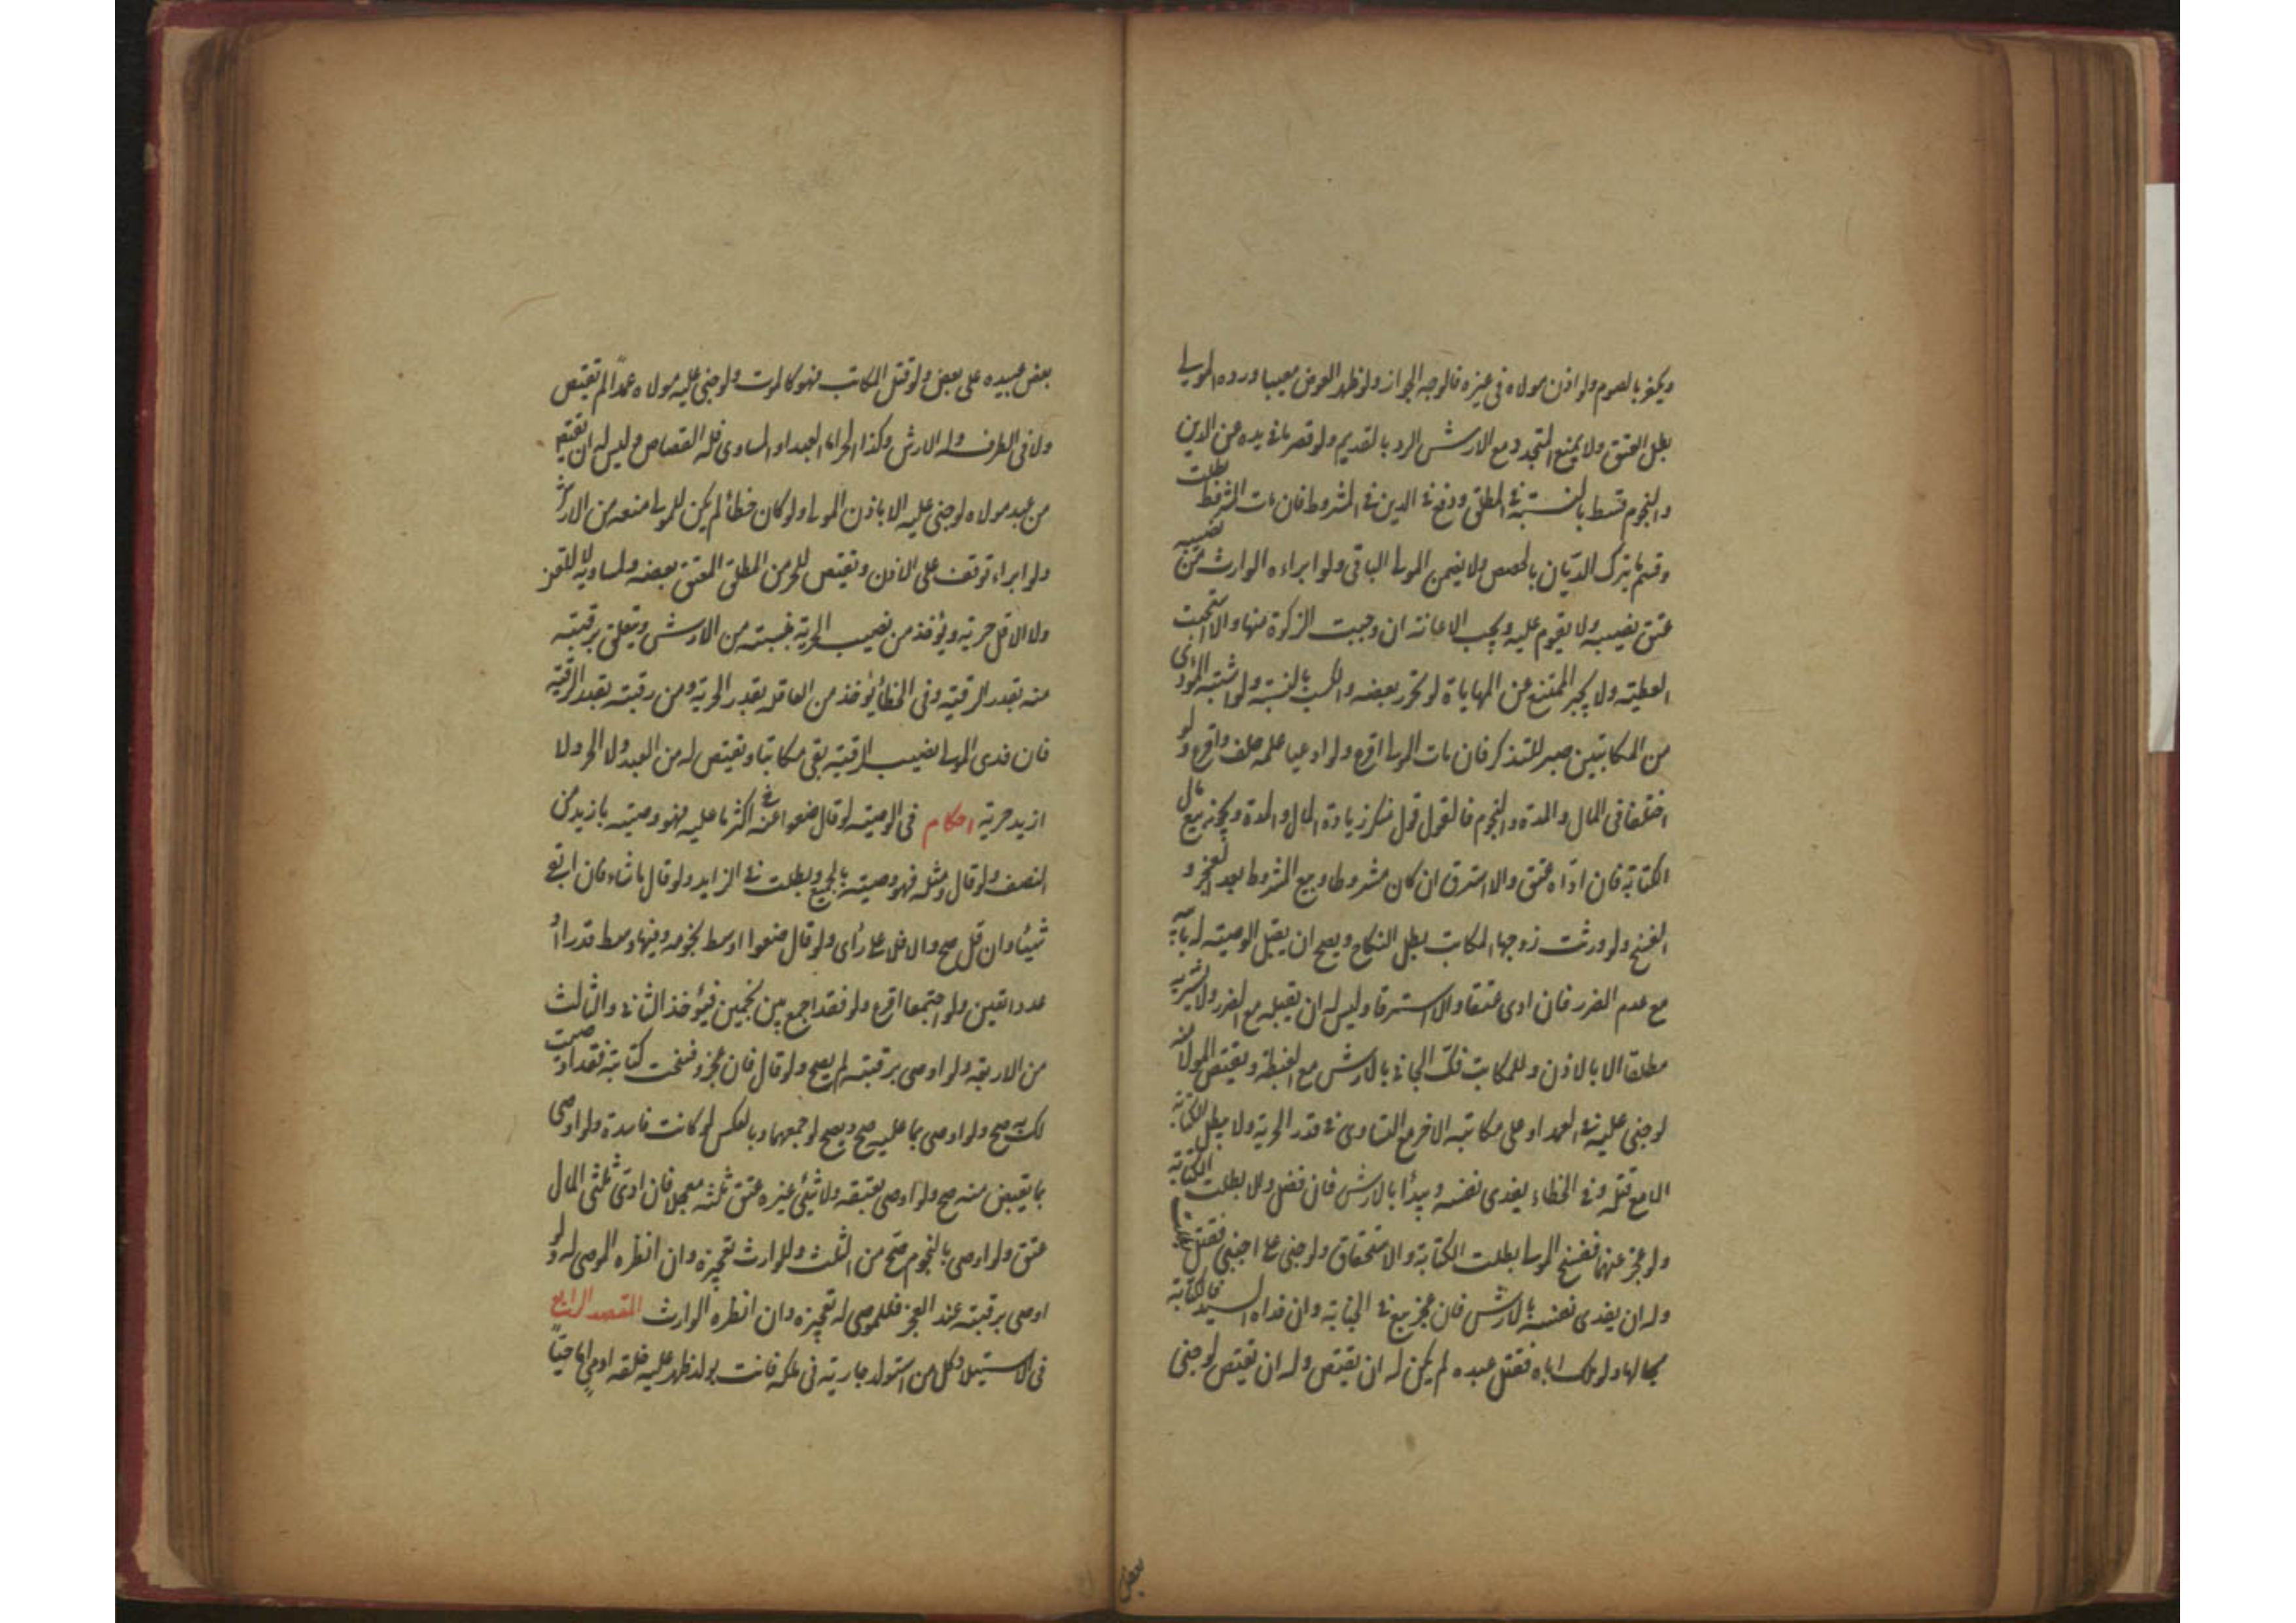 ويكفر بالصوم ولو اذن مولاه فى غيره فالوجه الجواز ولو ظهر العوض معيبا ورده المولى
بطل العتق ولا يمنع المتجدد مع الارش الرد بالقديم ولو قصر ما فى يده عن الدين
والنجوم قسط بالنسبة فى المطلق ودفع فى الدين فى المشروط فان مات المشروط بطلت
وقسم ما يترك الديان بالحصص ولا يضمن المولى الباقى ولو ابراءه الوارث من نصيبه
عتق نصيبه ولا يقوم عليه ويجب الاعانة ان وجبت الزكوة منها والا استحبت
العطية ولا يجبر الممتنع عن المهاياة لو تحرر بعضه والكسب بالنسبة ولو اشتبه المؤدى
من المكاتبين صبر للتذكر فان مات المولى اقرع ولو ادعيا علمه حلف واقرع ولو
اختلفا فى المال والمدة والنجوم فالقول قول منكر زيادة المال والمدة ويجوز بيع مال
الكتابة فان اداه عتق والا استرق ان كان مشروطا وبيع المشروط بعد العجز و
الفسخ ولو ورثت زوجها المكاتب بطل النكاح ويصح ان يقبل الوصية له بابيه
مع عدم الضرر فان ادى عتقا والا استرقا وليس له ان يقبله مع الضرر ولا يشتريه
مطلقا الا بالاذن وللمكاتب فك الجانى بالارش مع الغبطة ويقتص المولى منه
لوجنى عليه فى العمد او على مكاتبه الاخر مع التساوى فى قدر الحرية ولا يبطل الكتابة
الا مع قتله وفى الخطاء يفدى نفسه ويبدأ بالارش فان فضل والا بطلت الكتابة
ولو عجز عنهما ففسخ المولى بطلت الكتابة والاستحقاق ولو جنى على اجنبى فقتل
وله ان يفدى نفسه بالارش فان عجز بيع فى الجناية وان فداه السيد فالكتابة
بحالها ولو ملك اباه فقتل عبده لم يكن له ان يقتص وله ان يقتص لو جنى
بعض
بعض عبيده على بعض ولو قتل المكاتب فهو كالموت ولو جنى عليه مولاه عمدًا لم يقتص
ولا فى الطرف وله الارش وكذا الحر اما العبد او المساوى فله القصاص وليس له ان يقتص
من عبد مولاه لو جنى عليه الا باذن المولى ولو كان خطأ لم يكن للمولى منعه من الارش
ولو ابراء توقف على الاذن ويقتص للحر من المطلق المعتق بعضه ولمساويه لا للقن
ولا الاقل حرية ويؤخذ من نصيب الحرية بنسبته من الارش ويتعلق برقبته
منه بقدر الرقية وفى الخطأ يؤخذ من العاقلة بقدر الحرية ومن رقبته بقدر الرقية
فان فدى المولى نصيب الرقية بقى مكاتبا ويقتص له من العبد ولا الحر ولا
ازيد حرية احكام فى الوصية لو قال ضعوا عنه اكثر ما عليه فهو وصية بازيد من
النصف ولو قال ومثله فهو وصية بالجميع وبطلت فى الزايد ولو قال ما شاء فان ابقى
شيئا وان قل صح والا فلا على رأى ولو قال ضعوا اوسط نجومه وفيها وسط قدرا او
عددا تعين ولو اجتمعا اقرع ولو فقد اجمع بين نجمين فيؤخذ الثانى والثالث
من الاربعة ولو اوصى برقبته لم يصح ولو قال فان عجز وفسخت كتابته فقد اوصيت
لك به صح ولو اوصى بما عليه صح ويصح لو جمعهما وبالعكس لو كانت فاسدة ولو اوصى
بما يقبض منه صح ولو اوصى بعتقه ولا شئ غيره عتق ثلثه معجلا فان ادى ثلثى المال
عتق ولو اوصى بالنجوم صح من الثلث وللوارث تعجيزه وان انظره الموصى له ولو
اوصى برقبته عند العجز فللموصى له تعجيزه وان انظره الوارث المقصد الرابع
فى الاستيلاد وكل من استولد جارية فى ملكه فاتت بولد ظهر عليه خلقة ادمى اما حيًا